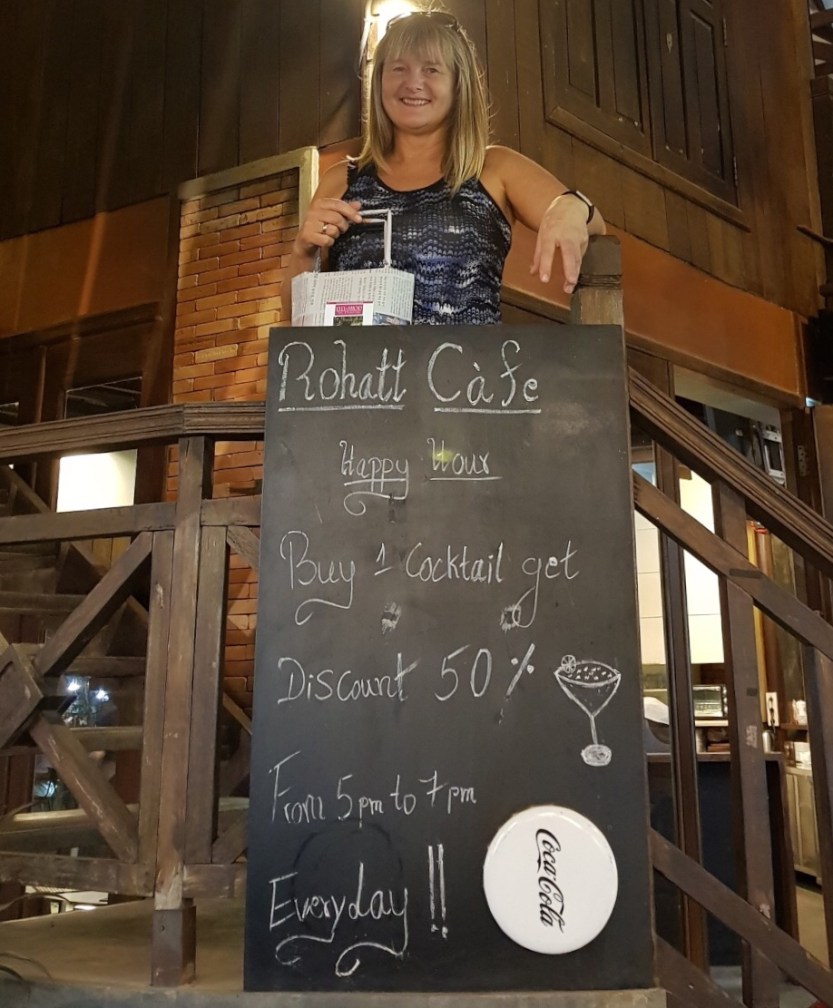 Rohatt Càfe
Happy Hour
Buy 1 Cocktail get
Discount 50%
From 5pm to 7pm
Everyday !!
Coca-Cola